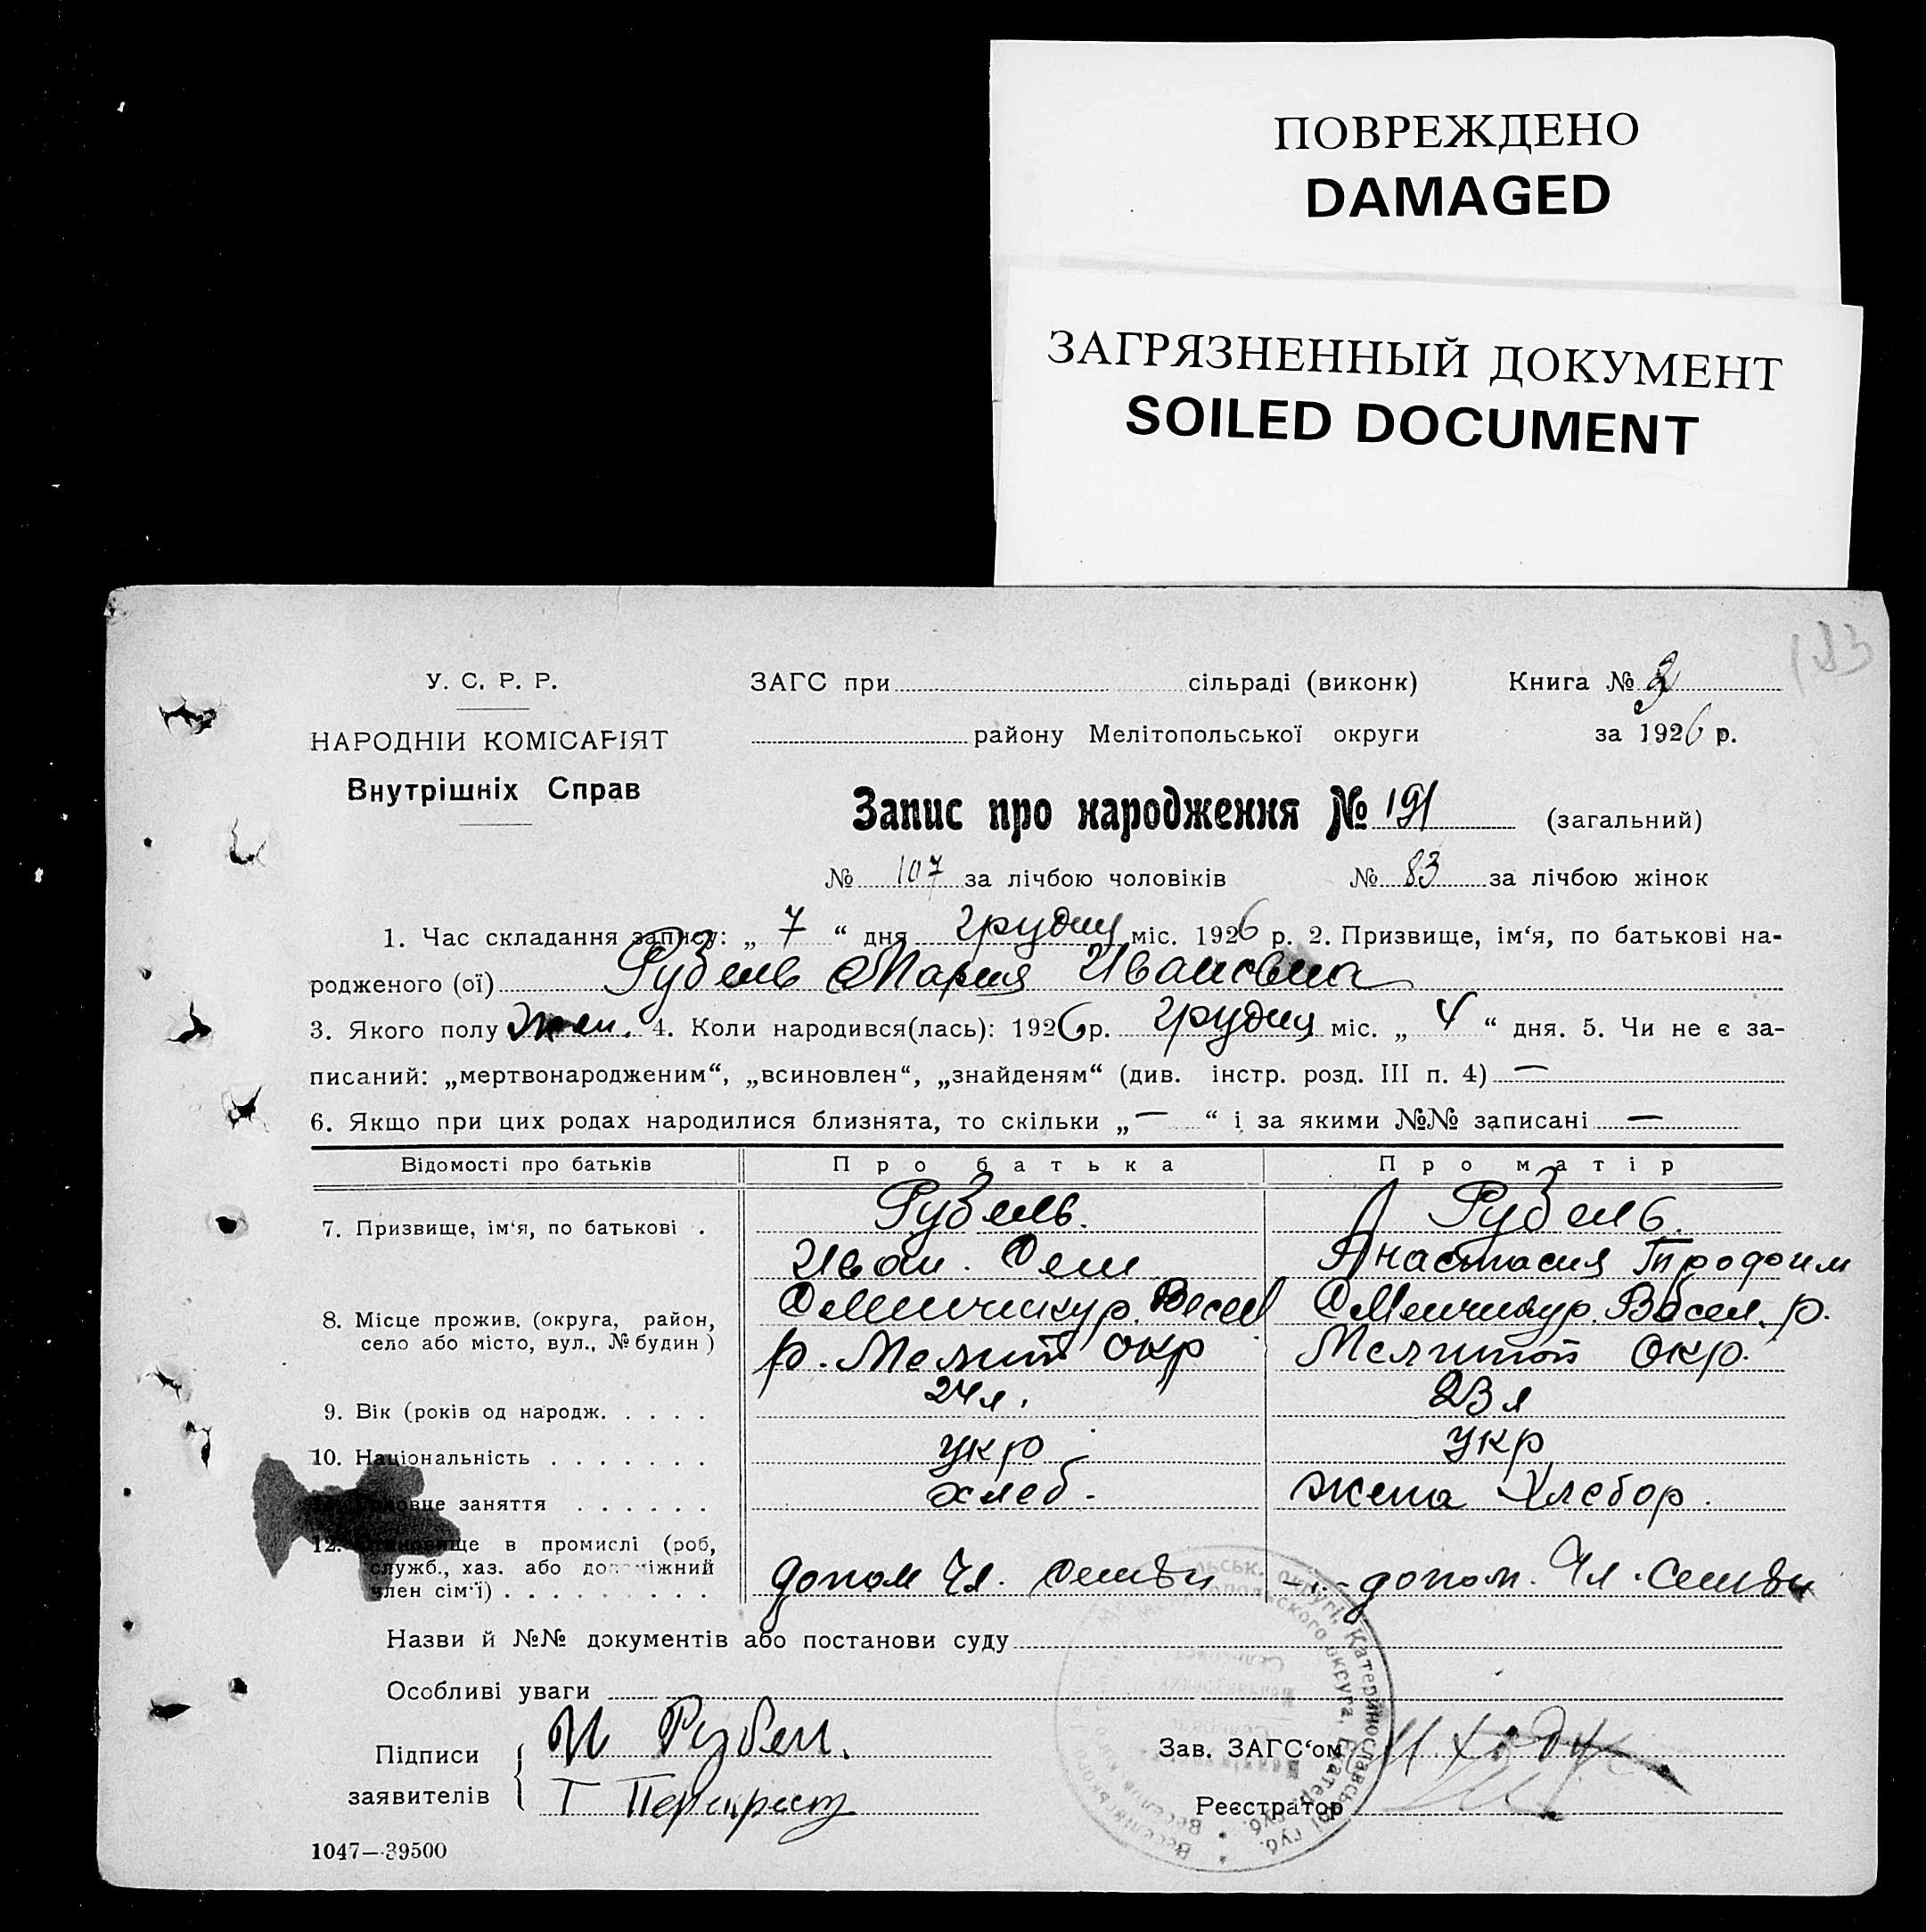 ПОВРЕЖДЕНО
DAMAGED
ЗАГРЯЗНЕННЫЙ ДОКУМЕНТ
SOILED DOCUMENT
133
У. С. Р. Р.
НАРОДНІЙ КОМІСАРІЯТ
Внутрішніх Справ
ЗАГС при сільраді (виконк) Книга № 2
району Мелітопольської округи за 1926 р.
Запис про народження № 191 (загальний)
№ 107 за лічбою чоловіків № 83 за лічбою жінок
1. Час складання запису: „ 7 “ дня грудня міс. 1926 р. 2. Призвище, ім‘я, по батькові на-
родженого (ої) Рубель Мария Ивановна
3. Якого полу жен. 4. Коли народився(лась): 1926 р. грудня міс. „ 4 “ дня. 5. Чи не є за-
писаний: „мертвонародженим“, „всиновлен“, „знайденям“ (див. інстр. розд. III п. 4) —
6. Якщо при цих родах народилися близнята, то скільки „ — “ і за якими №№ записані —
Відомості про батьків Про батька Про матір
7. Призвище, ім‘я, по батькові . Рубель. Рубель.
Иван. Сем Анастасия Трофим
8. Місце прожив. (округа, район, С Менчикур. Весел С Менчикур. Весел. р.
село або місто, вул., № будин ) р. Мелит окр Мелитоп окр.
9. Вік (років од народж. . . . . 24 л. 23 л
10. Національність . . . . . . . укр укр
11. Головне заняття . . . . . . хлеб. жена Хлебор.
12. Становище в промислі (роб,
служб., хаз. або допоміжний
член сім‘ї) . . . . . . . . . допом Чл. семьи — допом. Чл. семьи
Назви й №№ документів або постанови суду
Особливі уваги
Підписи И Рубел. Зав. ЗАГС‘ом
заявителів Т Перекрест Реєстратор
1047—39500